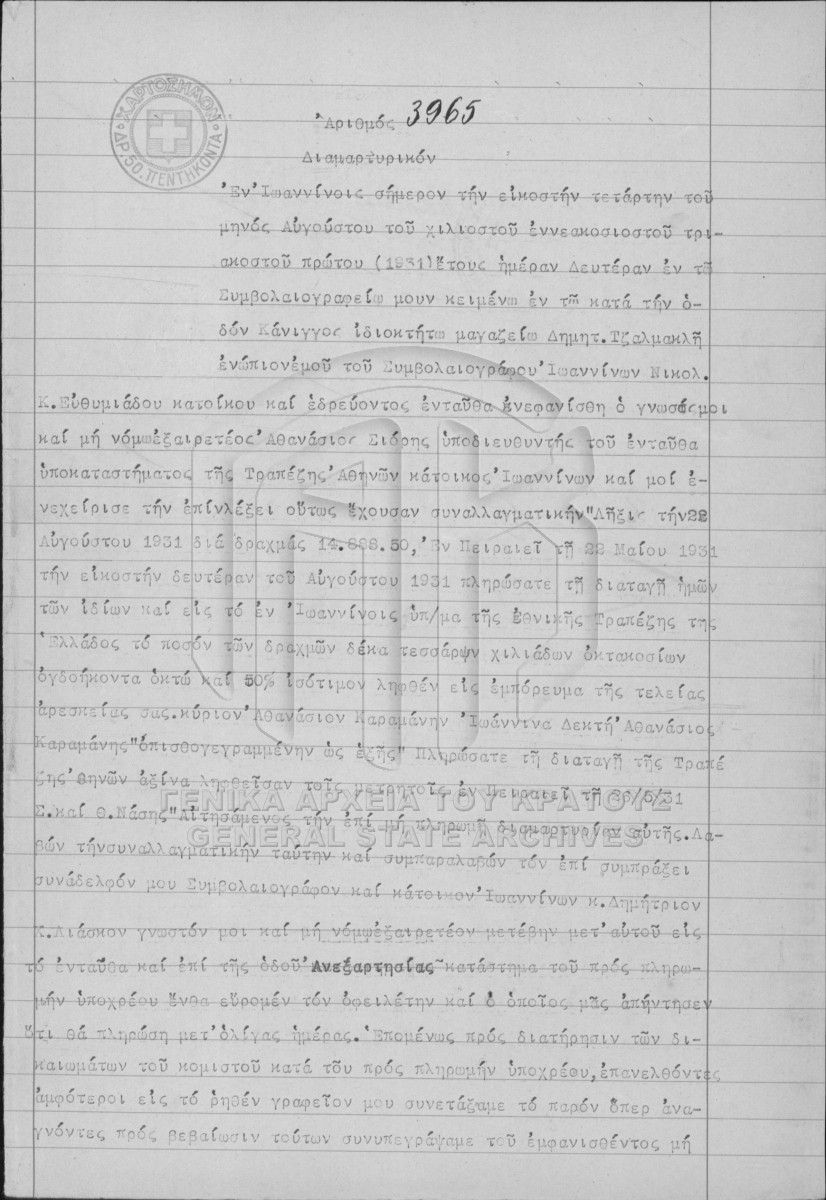 ΧΑΡΤΟΣΗΜΟΝ
ΔΡ. 50. ΠΕΝΤΗΚΟΝΤΑ
Ἀριθμός 3965
Διαμαρτυρικόν
Ἐν Ἰωαννίνοις σήμερον τήν εἰκοστήν τετάρτην τοῦ
μηνός Αὐγούστου τοῦ χιλιοστοῦ ἐννεακοσιοστοῦ τρι-
ακοστοῦ πρώτου (1931) ἔτους ἡμέραν Δευτέραν ἐν τῶ
Συμβολαιογραφείω μουν κειμένω ἐν τῶ κατά τήν ὁ-
δόν Κάνιγγος ἰδιοκτήτω μαγαζείω Δημητ. Τζαλμακλῆ
ἐνώπιονέμοῦ τοῦ Συμβολαιογράφου Ἰωαννίνων Νικολ.
Κ. Εὐθυμιάδου κατοίκου καί ἑδρεύοντος ἐνταῦθα ἐνεφανίσθη ὁ γνωσάςμοι
καί μή νόμωἐξαιρετέος Ἀθανάσιος Σιόρης ὑποδιευθυντής τοῦ ἐνταῦθα
ὑποκαταστήματος τῆς Τραπέζης Ἀθηνῶν κάτοικος Ἰωαννίνων καί μοί ἐ-
νεχείρισε τήν ἐπίνλέξει οὕτως ἔχουσαν συναλλαγματικήν "Λῆξις τήν22
Αὐγούστου 1931 διά δραχμάς 14.888.50, Ἐν Πειραιεῖ τῆ 22 Μαίου 1931
τήν εἰκοστήν δευτέραν τοῦ Αὐγούστου 1931 πληρώσατε τῆ διαταγῆ ἡμῶν
τῶν ἰδίων καί εἰς τό ἐν Ἰωαννίνοις ὑπ/μα τῆς ἐθνικῆς Τραπέζης της
Ἑλλάδος τό ποσόν τῶν δραχμῶν δέκα τεσσάρων χιλιάδων ὀκτακοσίων
ὀγδοήκοντα ὀκτώ καί 50% ἰσότιμον ληφθέν εἰς ἐμπόρευμα τῆς τελείας
ἀρεσκείας σας. κύριον Ἀθανάσιον Καραμάνην Ἰωάννινα Δεκτή Ἀθανάσιος
Καραμάνης" ὀπισθογεγραμμένην ὡς ἑξῆς" Πληρώσατε τῆ διαταγῆ τῆς Τραπέ
ζης Ἀθηνῶν ἀξίνα ληφθεῖσαν τοῖς μετρητοῖς ἐν Πειραιεῖ τῆ 26/5/31
ΓΕΝΙΚΑ ΑΡΧΕΙΑ ΤΟΥ ΚΡΑΤΟΥΣ
Σ. καί Θ. Νάσης" Αἰτησάμενος τήν ἐπί μή πληρωμῆ διαμαρτυρίαν αὐτῆς. Λα-
GENERAL STATE ARCHIVES
βών τήνσυναλλαγματικήν ταύτην καί συμπαραλαβών τόν ἐπί συμπράξει
συνάδελφόν μου Συμβολαιογράφον καί κάτοικον Ἰωαννίνων κ. Δημήτριον
Κ. Λιάσκον γνωστόν μοι καί μή νόμωἐξαιρετέον μετέβην μετ' αὐτοῦ εἰς
τό ἐνταῦθα καί ἐπί τῆς ὁδοῦ Ἀνεξαρτησίας κατάστημα τοῦ πρός πληρω-
μήν ὑποχρέου ἔνθα εὕρομέν τόν ὀφειλέτην καί ὁ ὁποῖος μᾶς ἀπήντησεν
ὅτι θά πληρώση μετ' ὀλίγας ἡμέρας. Ἑπομένως πρός διατήρησιν τῶν δι-
καιωμάτων τοῦ κομιστοῦ κατά τοῦ πρός πληρωμήν ὑποχρέου, ἐπανελθόντες
ἀμφότεροι εἰς τό ῥηθέν γραφεῖον μου συνετάξαμε τό παρόν ὅπερ ἀνα-
γνόντες πρός βεβαίωσιν τούτων συνυπεγράψαμε τοῦ ἐμφανισθέντος μή